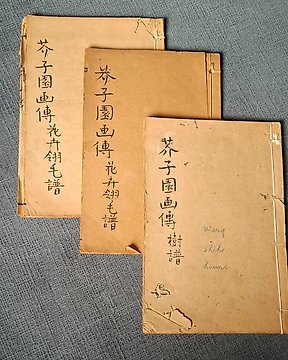 芥子園画傳花卉翎毛譜
芥子園画傳花卉翎毛譜
芥子園画傳樹譜
Wang